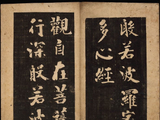 般若波羅蜜
多心經
觀自在菩薩
行深般若波